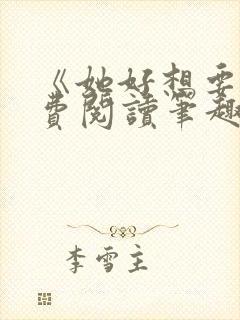 《她好想要
費閱讀筆趣
李雪主